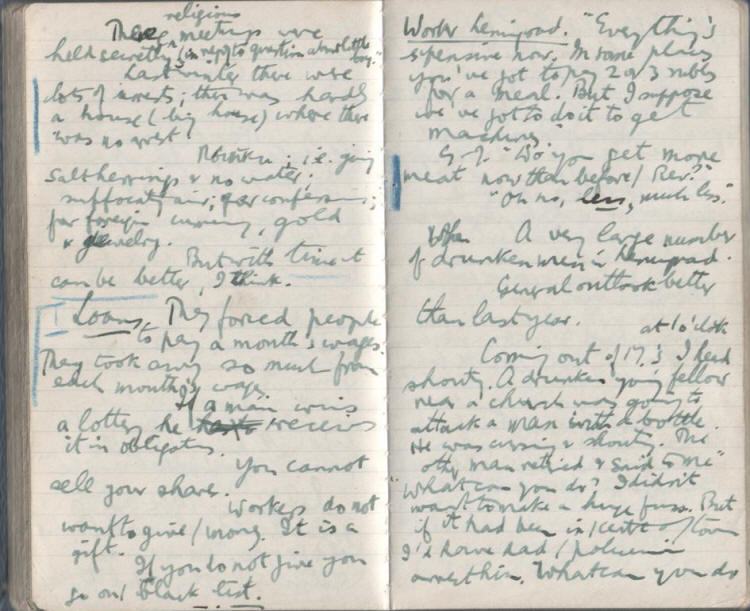 religious
These meetings were
held secretly (in reply to question about little boy."
Last winter there were
lots of arrests; there was hardly
a house (big house) where there
was no arrest
i.e. giving
salt herrings & no water.
suffocating air; for confession;
for foreign currency, gold
& jewelry.
But with time it
can be better, I think.
Loans. They forced people
to pay a month's wages.
They took away so much from
each month's wage.
If a man wins
a lottery he receives
it in obligations.
You cannot
sell your shares.
Workers do not
want to give / money. It is a
gift.
If you do not give you
go on / black list.
Worker Leningrad. "Everything's
expensive now. In some places
you've got to pay 2 or 3 rubles
for a meal. But I suppose
we've got to do it to get
machines."
G.J. "Do you get more
meat now than before / Rev?"
"Oh no, less, much less."
A very large number
of drunken men in Leningrad.
General outlook better
than last year.
at 1 o'clock
Coming out of 17.'s I heard
shouting. A drunken young fellow
near a church was going to
attack a man with a bottle.
He was cursing & shouting. The
other man retired & said to me"
"What can you do? I didn't
want to make a huge fuss. But
if it had been in / centre of / town
I'd have had / policeman
arrest him. What can you do